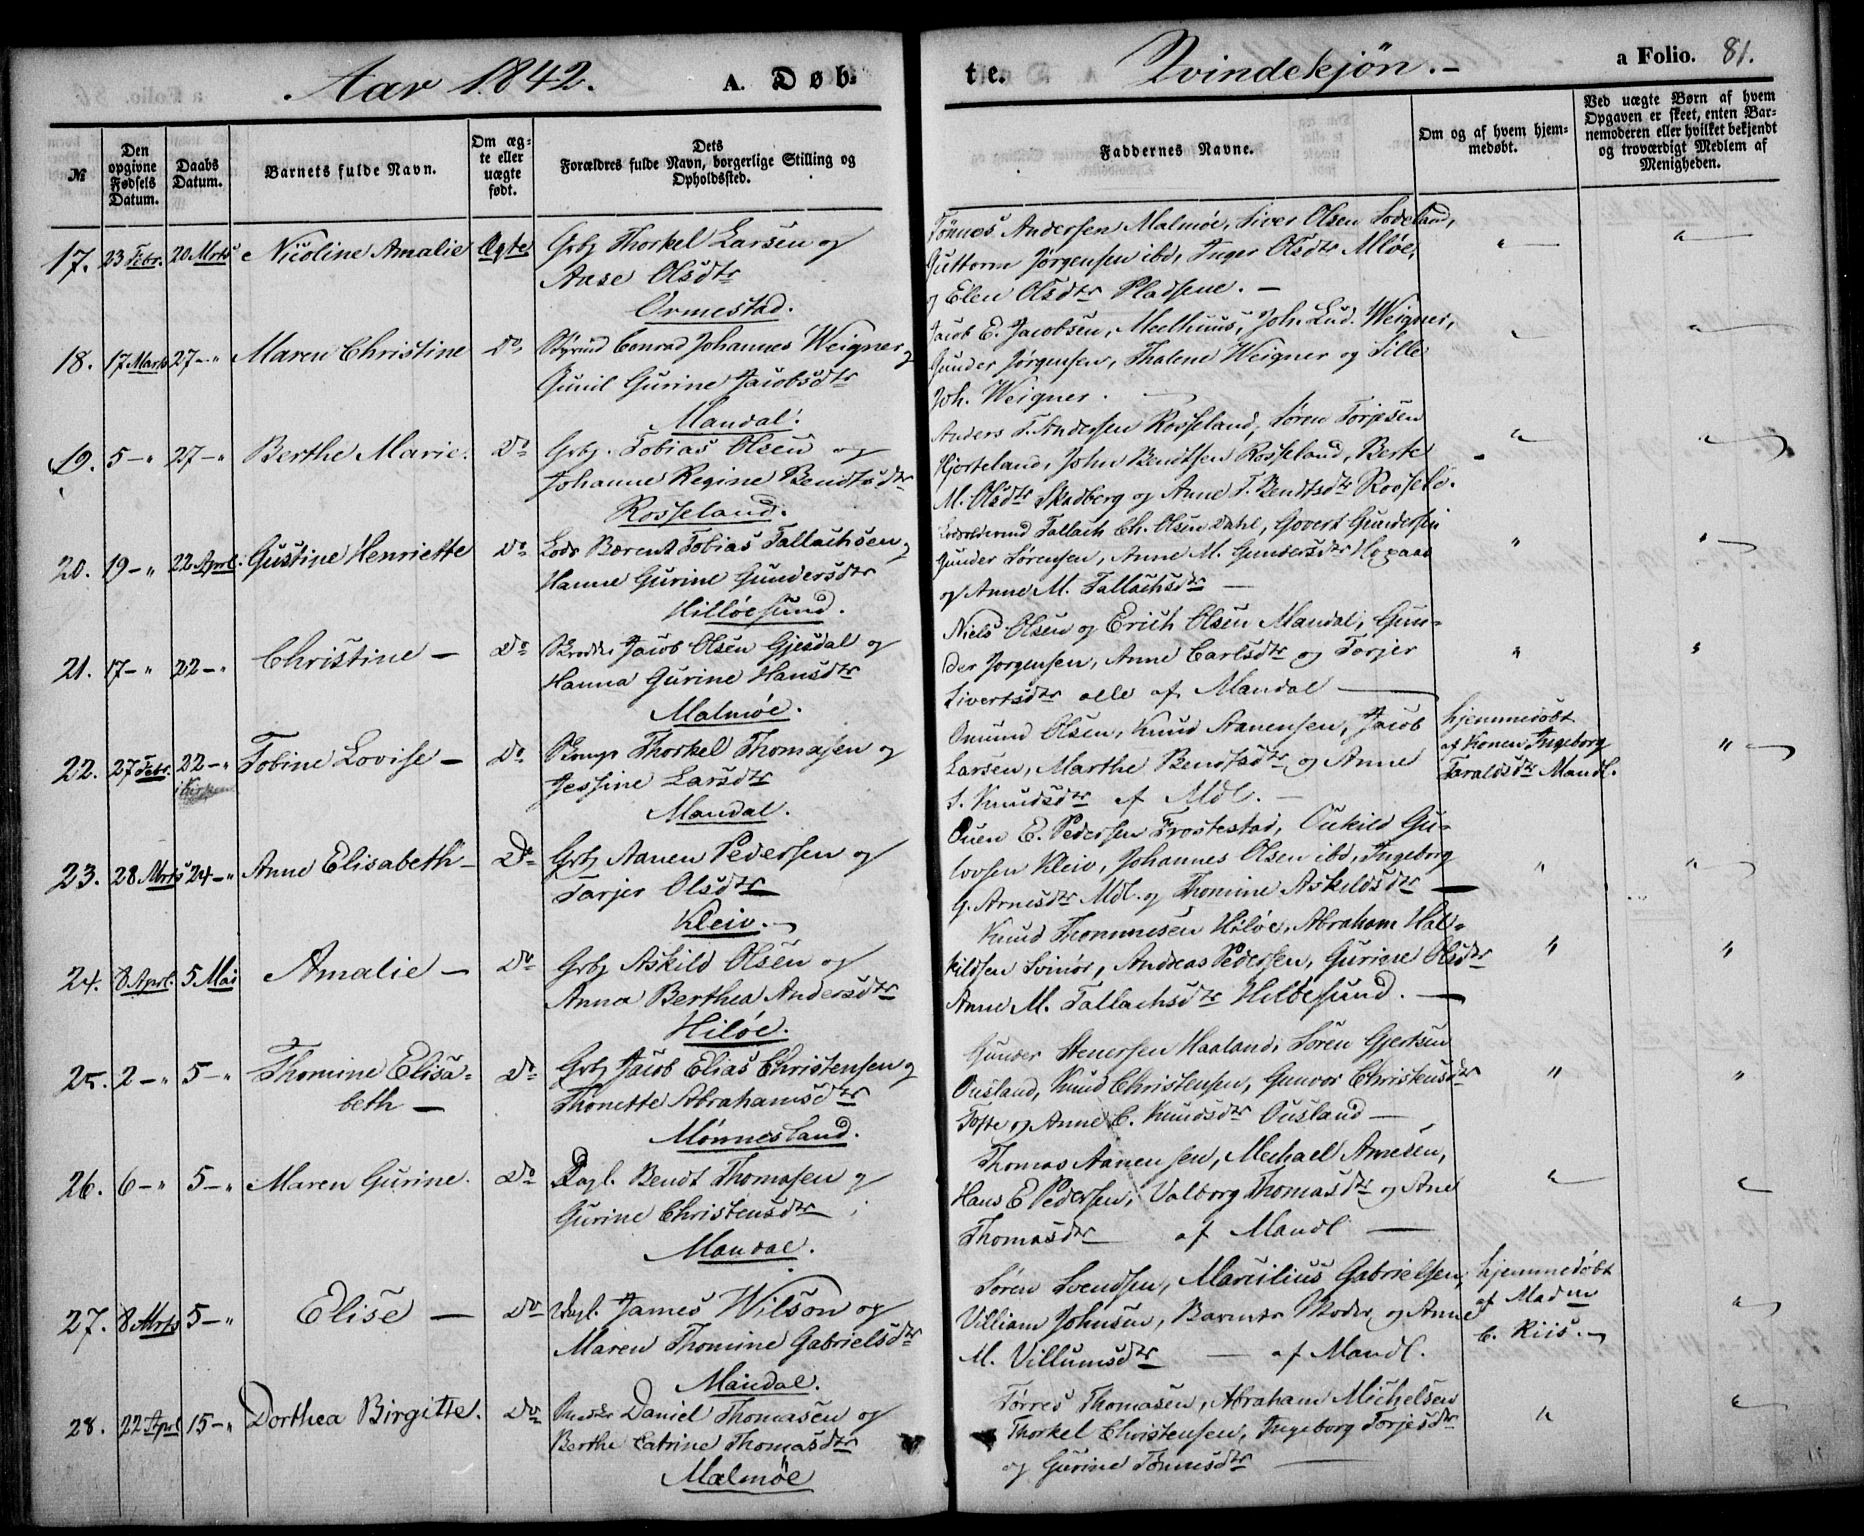 Aar 1842. A. Døb-
te. Qvindekjön. a Folio. 81.
№
Den opgivne Fødsels Datum.
Daabs Datum.
Barnets fulde Navn.
Om ægte eller uægte født.
Dets Forældres fulde Navn, borgerlige Stilling og Opholdssted.
Faddernes Navne.
Om og af hvem hjemmedøbt.
Ved uægte Børn af hvem Opgaven er skeet, enten Barnemoderen eller hvilket bekjendt og troværdigt Medlem af Menigheden.
17. 23 Febr. 20 Mrts Nicoline Amalie Ægte Grbr Thorkel Larsen og
Aase Olsdtr
Ormestad.
Tönnes Andersen Malmöe, Siver Olsen Sodeland,
Guttorm Jörgensen ibd, Inger Olsdtr Mlöe,
og Elen Olsdtr Pladsene. —
18. 17 Marts 27 – " Maren Christine Do Conrad Johannes Weigner og
Gunil Gurine Jacobsdtr
Mandal.
Jacob E. Jacobsen, Meelhuus, Joh. Lud. Weigner,
Gunder Jörgensen, Thalene Weigner og Sille
Joh. Weigner.
19. 5 – " 27 – " Berthe Marie. Do Grbr. Tobias Olsen og
Johanne Regine Bendtsdtr
Rosseland.
Anders T. Andersen Rosseland, Sören Torjesen
Hjorteland, John Bendtsen Rosseland, Berte
M. Olsdtr Skadberg og Anne T. Bendtsdtr Rossel.
20. 19 – " 22 Aprl. Gustine Henriette Do Lods Bærent Tobias Tallachsen og
Hanne Gurine Gundersdtr
Hillöesund.
Lodsoldermd Tallach Ch. Olsen Dahl, Govert Gundersen
Gunder Sörensen, Anne M. Gundersdtr
og Anne M. Tallachsdtr —
21. 17 – " 22 – " Christine — Do Jacob Olsen Gjesdal og
Hanna Gurine Hansdtr
Malmöe.
Niels Olsen og Erich Olsen Mandal, Gun-
der Jörgensen, Anne Carlsdtr og Torjer
Sivertsdtr alle af Mandal —
22. 27 Febr. 22 – " Tobine Lovise — Do Thorkel Thomasen og
i Kirken
Jessine Larsdtr
Mandal.
Omund Olsen, Knud Aanensen, Jacob
Larsen, Marthe Bendtsdtr og Anne
S. Knudsdtr af Mdl. —
hjemmedöbt
af Konen Ingeborg
Taraldsdtr Mandl.
23. 28 Mrts 24 – " Anne Elisabeth — Do Grbr Aanen Pedersen og
Tarjer Olsdtr
Kleiv. —
Ouen E. Pedersen Frostestad, Oukild Gu-
lovsen Kleiv, Johannes Olsen ibd, Ingeborg
G. Arnesdtr Mdl. og Thomine Askildsdtr —
24. 8 Aprl. 5 Mai Amalie — Do Grbr Askild Olsen og
Anna Berthea Andersdtr
Hilöe.
Knud Thommesen Hilöe, Abraham Hal-
kildsen Svinör, Andreas Pedersen, Gurine Olsdtr
Anne M. Tallachsdtr Hillöesund. —
25. 2 – " 5 – " Thomine Elisa- Do Grbr Jacob Elias Christensen og
beth —
Thonette Abrahamsdtr
Mönnesland.
Gunder Stenersen Haaland, Sören Gjertsen
Ousland, Knud Christensen, Gunvor Christensdtr
Tofte og Anne C. Knudsdtr Ousland —
26. 6 – " 5 – " Maren Gurine. Do Dagl. Bendt Thomasen og
Gurine Christensdtr
Mandal.
Thomas Aanensen, Mechael Arnesen,
Hans E Pedersen, Valborg Thomasdtr og Ane
Thomasdtr af Mandl —
27. 8 Mrts 5 – " Elise — Do Dagl. James Wilson og
Maren Thomine Gabrielsdtr
Mandal.
Sören Svendsen, Marcilius Gabrielsen,
Villiam Johnsen, Barnets Moder, og Anne
M. Villumsdtr — af Mandl.
hjemmedöbt
af Madm
C. Riis. —
28. 22 Aprl 15 – " Dorthea Birgitte. Do Daniel Thomasen og
Berthe Catrine Thomasdtr
Malmöe
Törres Thomasen, Abraham Michelsen
Thorkel Christensen, Ingeborg Torjesdtr
og Gurine Tönnesdtr —